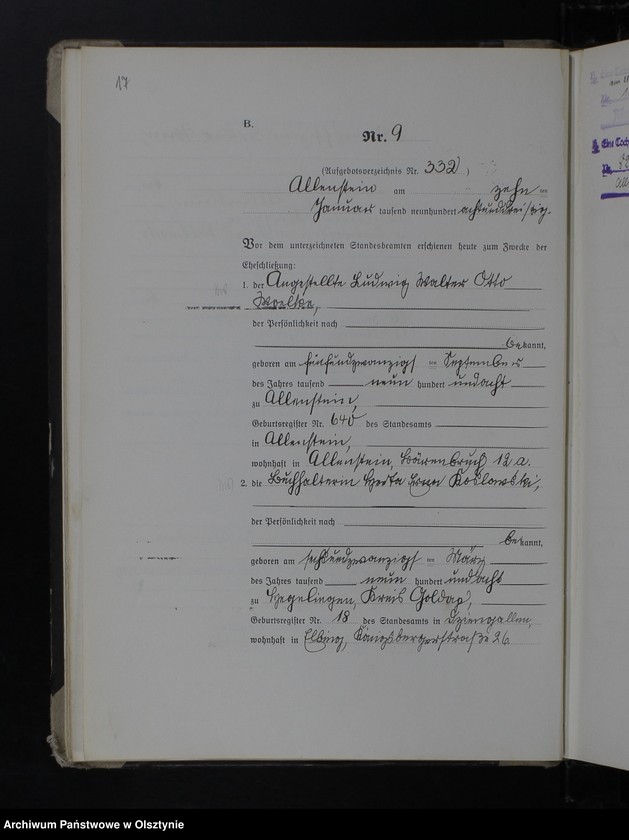 17
B.
Nr. 9
(Aufgebotsverzeichnis Nr. 332)
Allenstein am zehnten
Januar tausend neunhundert achtunddreißig.
Vor dem unterzeichneten Standesbeamten erschienen heute zum Zwecke der
Eheschließung:
1. der Angestellte Ludwig Walter Otto
Woelke,
der Persönlichkeit nach
bekannt,
geboren am fünfundzwanzigsten September
des Jahres tausend neun hundert undacht
zu Allenstein,
Geburtsregister Nr. 640 des Standesamts
in Allenstein,
wohnhaft in Allenstein, Bärenbruch 12a.
2. die Buchhalterin Herta Erna Koslowski,
der Persönlichkeit nach
bekannt,
geboren am sechsundzwanzigsten März
des Jahres tausend neun hundert undacht
zu Hegelingen, Kreis Goldap,
Geburtsregister Nr. 18 des Standesamts in
wohnhaft in Elbing, Königsbergerstraße 26.
Archiwum Państwowe w Olsztynie